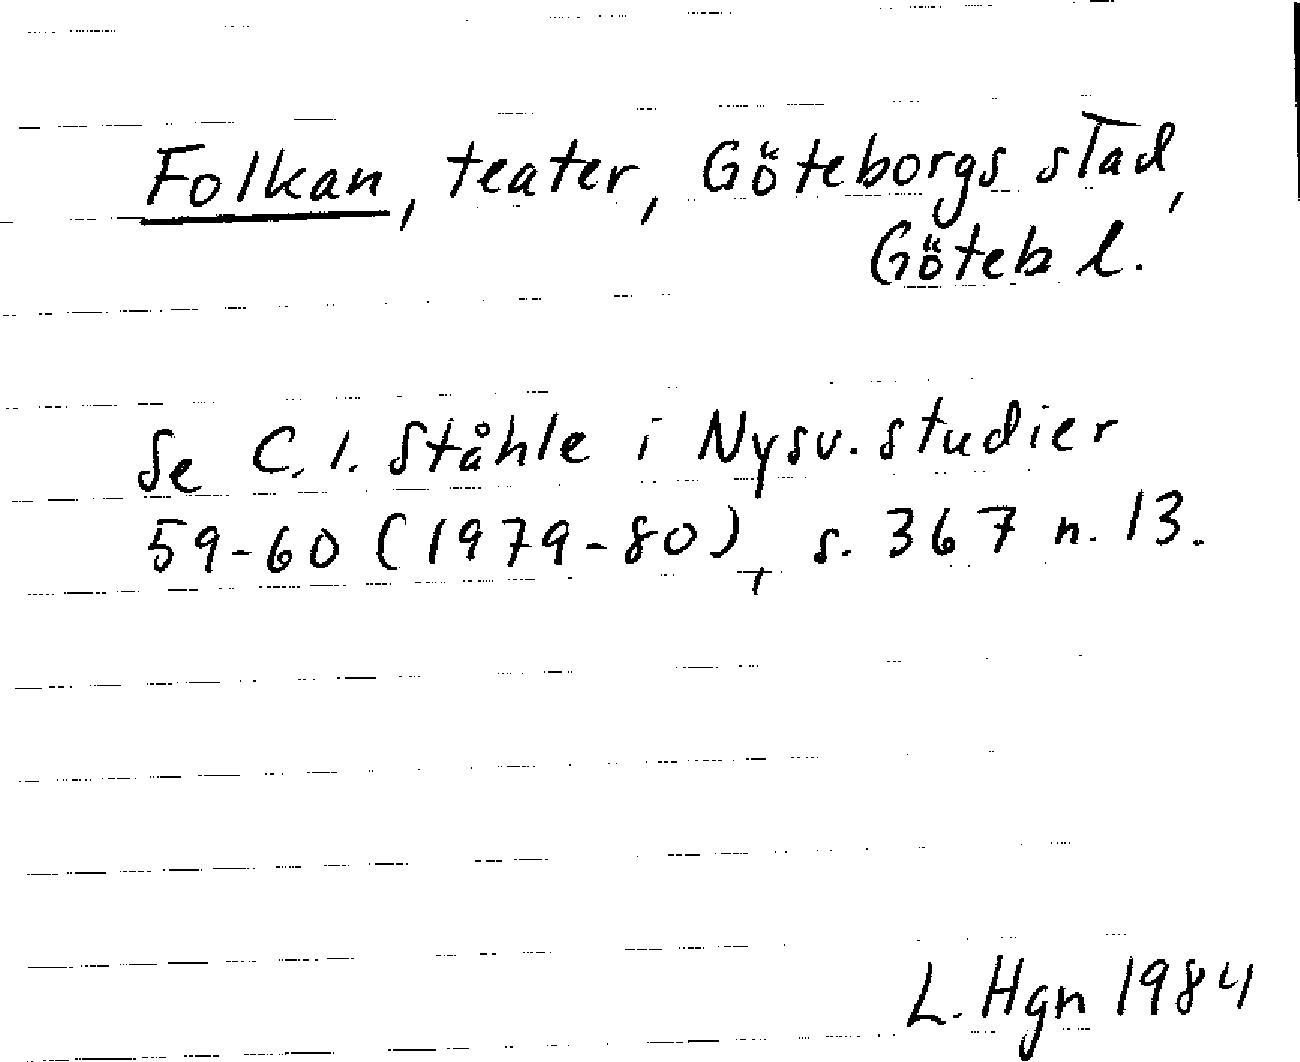 Folkan, teater, Göteborgs stad,
Göteb l.
Se C. I. Ståhle i Nysv. studier
59-60 (1979-80), s. 367 n. 13.
L. Hgn 1984